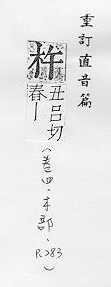 重訂直音篇
杵
丑呂切
春丨
(卷四·木部、P.283)